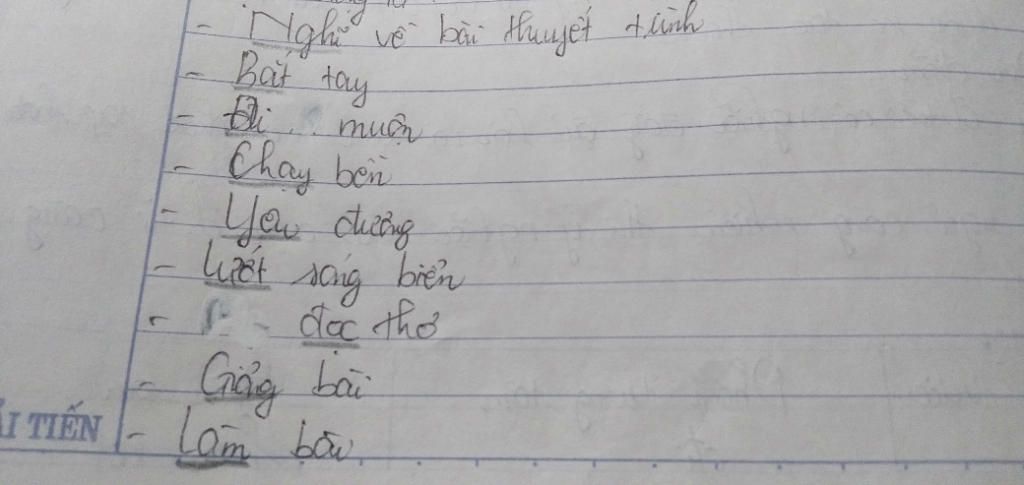 - Nghĩ về bài thuyết trình
- Bắt tay
- Đi muộn
- Chạy bền
- Yêu đương
- Lướt sóng biển
- đọc thơ
- Giảng bài
ẢI TIẾN - Làm bài